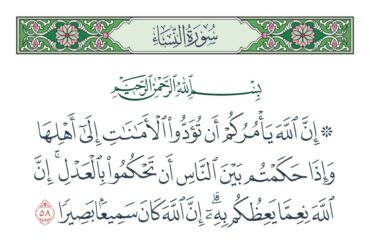 سُورَةُ النِّسَاءِ
بِسْمِ اللَّهِ الرَّحْمَٰنِ الرَّحِيمِ
۞ إِنَّ اللَّهَ يَأْمُرُكُمْ أَن تُؤَدُّوا الْأَمَانَاتِ إِلَىٰ أَهْلِهَا
وَإِذَا حَكَمْتُم بَيْنَ النَّاسِ أَن تَحْكُمُوا بِالْعَدْلِ ۚ إِنَّ
اللَّهَ نِعِمَّا يَعِظُكُم بِهِ ۗ إِنَّ اللَّهَ كَانَ سَمِيعًا بَصِيرًا ٥٨